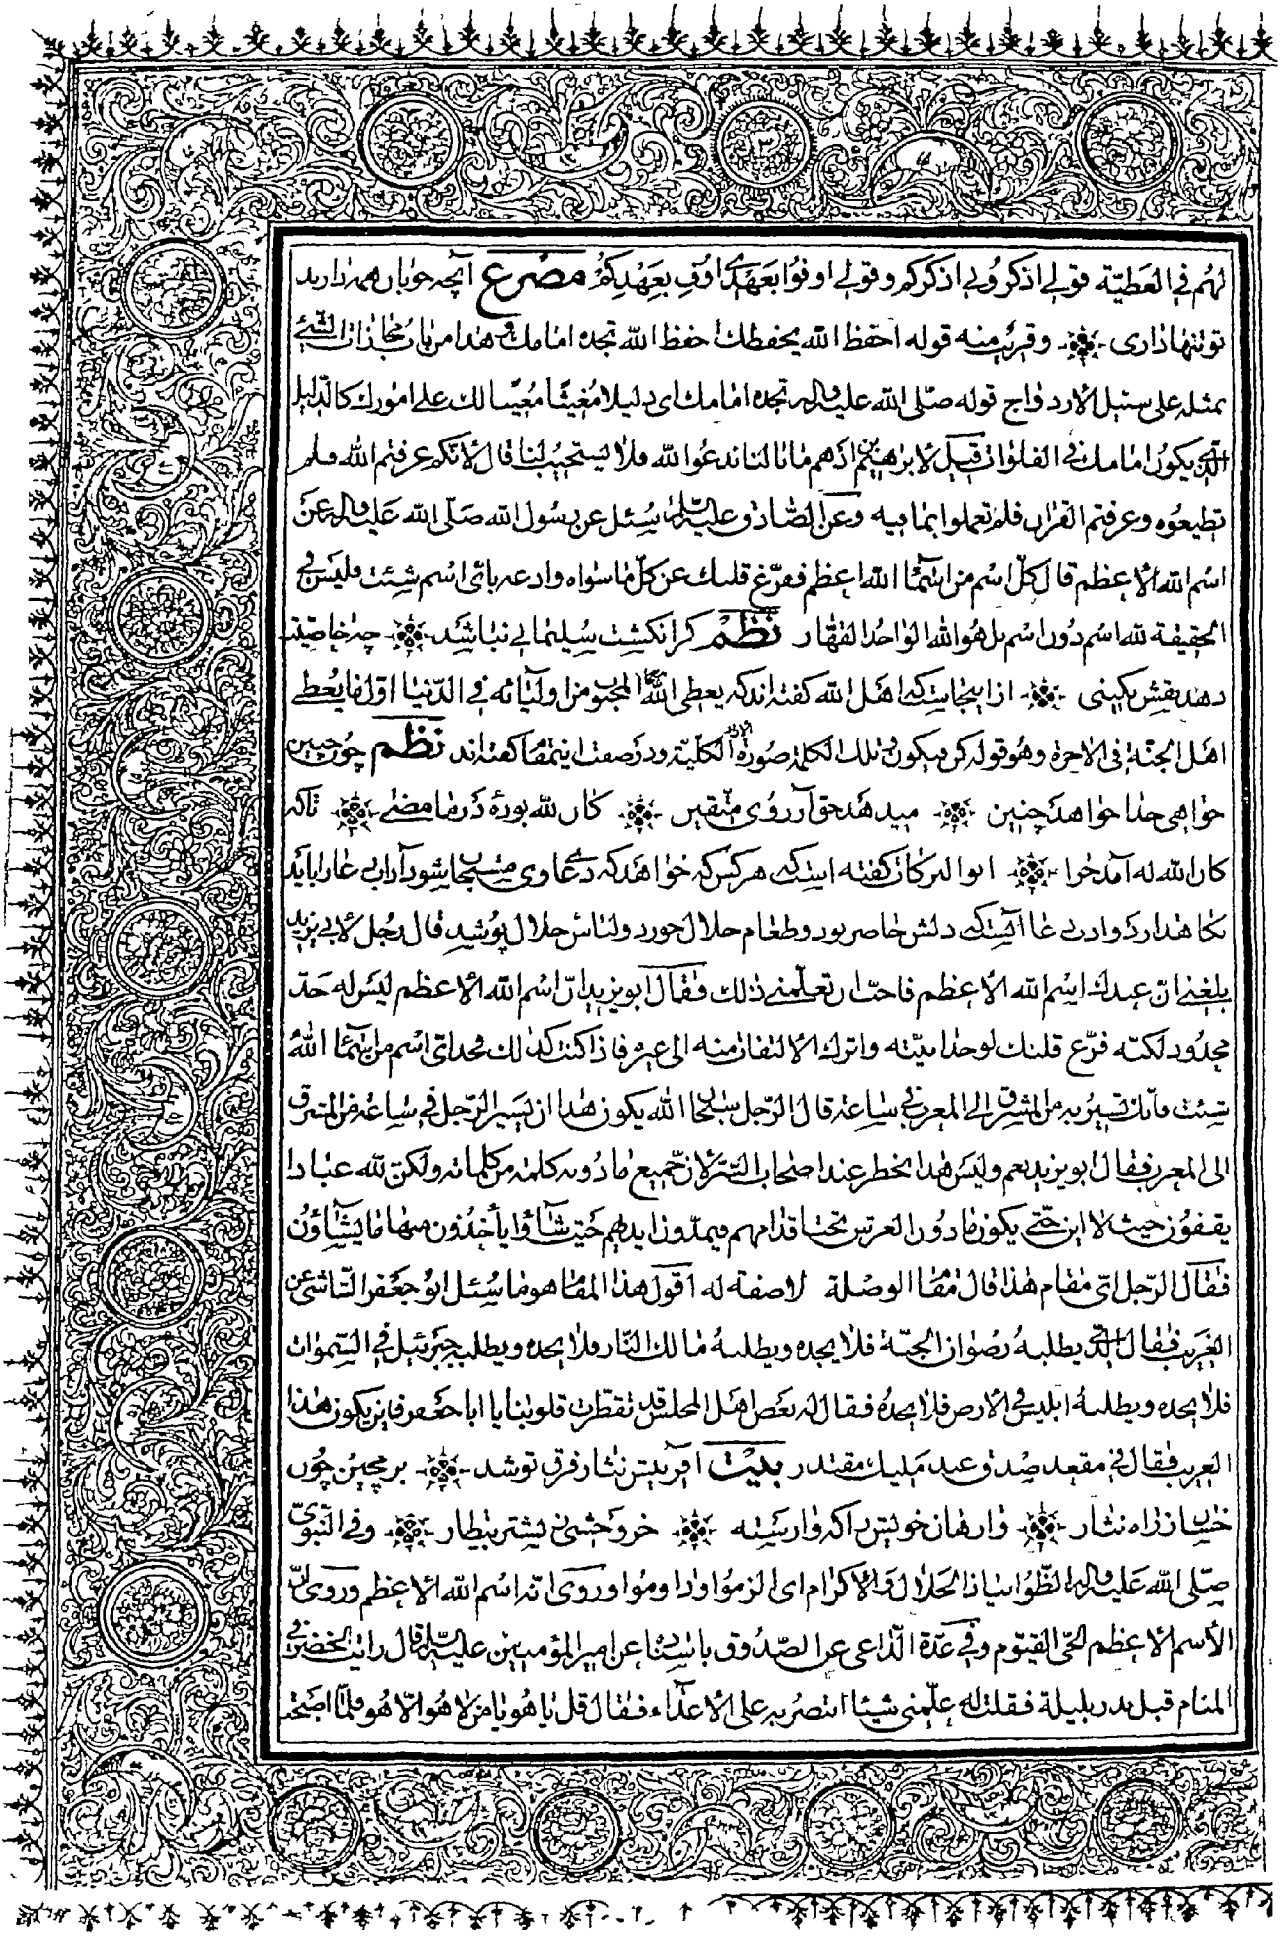 ١٣
لهم في العطيّة قولي اذكروني اذكركم وقولي اوفوا بعهدي اوف بعهدكم مصرع آنچه خوبان همه دارند
تو تنها داری وقريب منه قوله احفظ الله يحفظك احفظ الله تجده امامك وهذا من باب مجازات الشئ
بمثله على سبيل الازدواج قوله صلّى الله عليه وآله تجده امامك اى دليلا مغيثا معينا لك على امورك كالدّليل
الّذي يكون امامك في الفلوات قيل لابراهيم بن ادهم ما بالنا ندعو الله فلا يستجيب لنا قال لانّكم عرفتم الله فلم
تطيعوه وعرفتم القران فلم تعملوا بما فيه وعن الصّادق عليه السّلام سئل عن رسول الله صلّى الله عليه وآله عن
اسم الله الاعظم قال كلّ اسم من اسماء الله اعظم ففرّغ قلبك عن كلّ ما سواه وادعه باىّ اسم شئت وليس في
الحقيقة لله اسم دون اسم بل هو الله الواحد القهّار نظم گر انگشت سليمانى نباشد چه خاصيّت
دهد نقش نگينى از اينجاست كه اهل الله گفته‌اند كه يعطى الله المحبوب من اوليائه في الدّنيا اوّل ما يعطى
اهل الجنّة في الاخرة وهو قوله كن فيكون تلك الكلمة صورة الارادة الكليّة ودر صفت اينمقام گفته‌اند نظم چون چنين
خواهى خدا خواهد چنين ميدهد حق آرزوى متّقين كان لله بودۀ در ما مضى تا كه
كان الله له آمد جزا ابو البركات گفته است كه هر كس كه خواهد كه دعاى وى مستجاب شود آداب دعا را بايد
نگاهدارد وادب دعا آنست كه دلش حاضر بود وطعام حلال خورد ولباس حلال پوشيد قال رجل لابى يزيد
بلغنى انّ عندك اسم الله الاعظم فاحبّ ان تعلّمني ذلك فقال ابو يزيد انّ اسم الله الاعظم ليس له حدّ
محدود لكنّه فرّغ قلبك لوحدانيّته واترك الالتفات منه الى غيره فاذا كنت كذلك فخذ اىّ اسم من اسماء الله
شئت فانّك تسير به من المشرق الى المغرب في ساعة قال الرّجل سبحان الله يكون هذا ان يسير الرّجل في ساعة من المشرق
الى المغرب فقال ابو يزيد نعم وليس هذا بخطر عند اصحاب السّتر لانّ جميع ما دونه كلمة من كلماته ولكن لله عبادا
يقفون حيث لا اين حتّى يكون ما دون العرش تحت اقدامهم فيمدّون ايديهم حيث شاؤا يأخذون منها ما يشاؤن
فقال الرّجل اىّ مقام هذا قال مقام الوصلة لا صفة له اقول هذا المقام هو ما سئل ابو جعفر الشّاشى عن
الغريب فقال الّذي يطلبه رضوان الجنّة فلا يجده ويطلبه مالك النّار فلا يجده ويطلب جبرئيل في السّموات
فلا يجده ويطلبه ابليس في الارض فلا يجده فقال له بعض اهل المجلس قد تقطّرت قلوبنا يا ابا جعفر فاين يكون هذا
الغريب فقال في مقعد صدق عند مليك مقتدر بيت آفرينش نثار فرق توشد بر مچين چون
خسان ز راه نثار وارهان خويش را كه وارسته خر وحشى ز نيشتر بيطار وفي النّبوىّ
صلّى الله عليه وآله الظّوا بيا ذا الجلال والاكرام اى الزموا وداوموا وروى انّه اسم الله الاعظم وروى انّ
الاسم الاعظم الحىّ القيّوم وفي عدّة الدّاعى عن الصّدوق باسناده عن امير المؤمنين عليه السّلام قال رايت الخضر في
المنام قبل بدر بليلة فقلت له علّمني شيئا انتصر به على الاعداء فقال قل يا هو يا من لا هو الّا هو فلمّا اصبحت